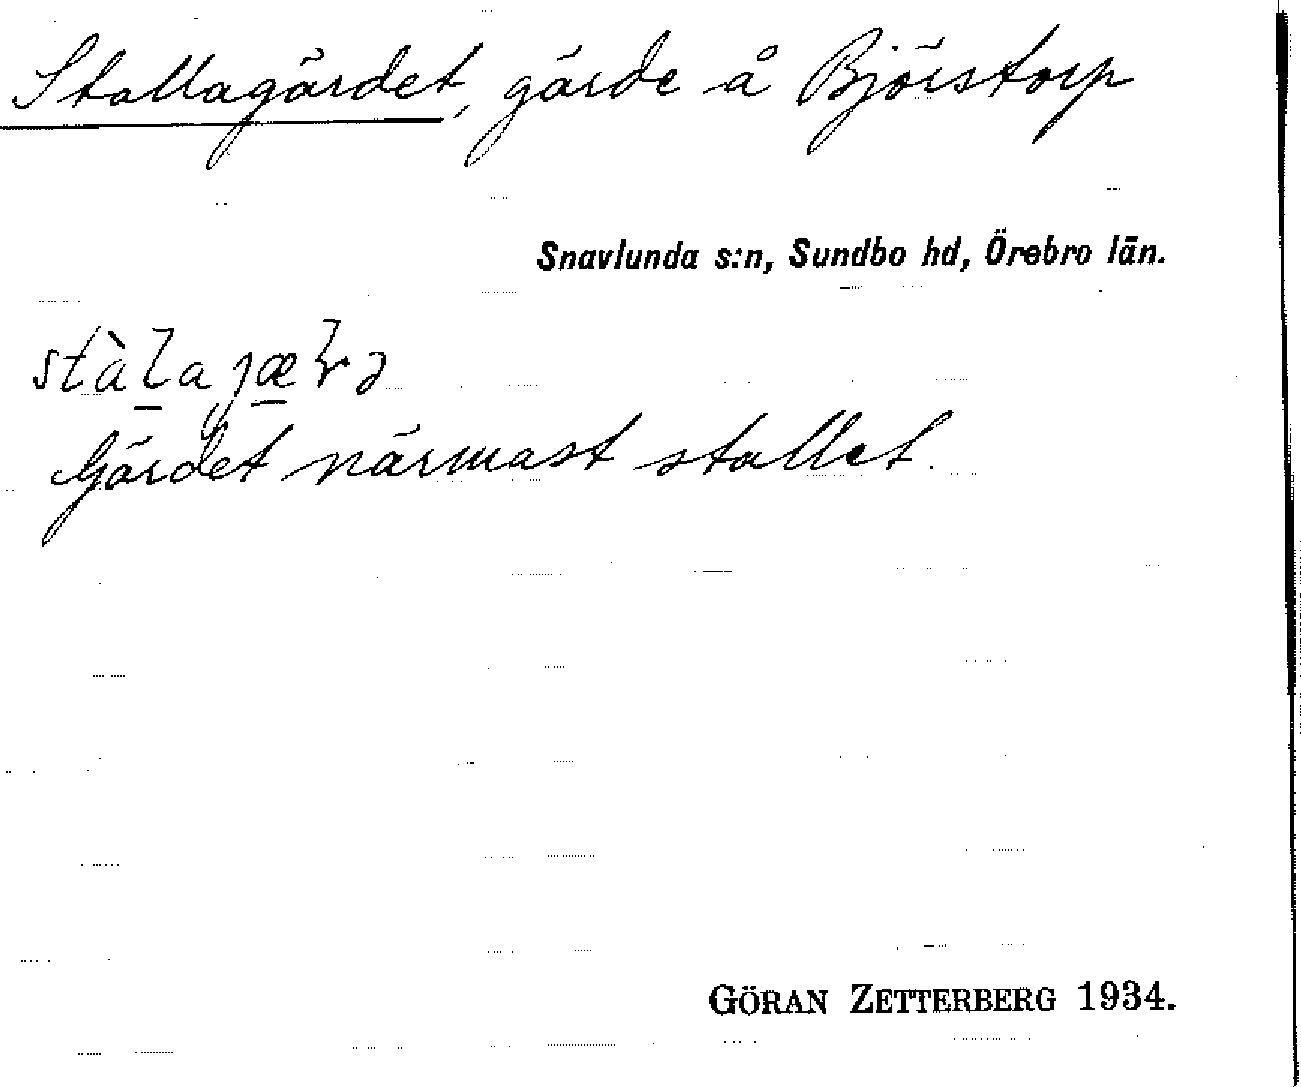 Stallagärdet, gärde å Björstorp
Snavlunda s:n, Sundbo hd, Örebro län.
Gärdet närmast stallet.
GÖRAN ZETTERBERG 1934.